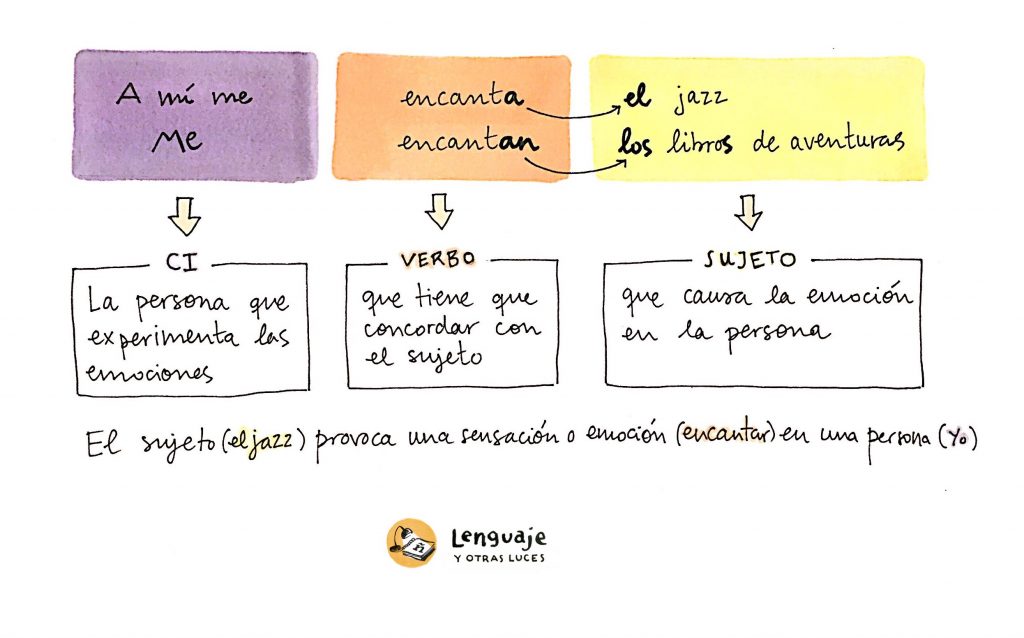 A mí me encanta el jazz
Me encantan los libros de aventuras
CI
La persona que
experimenta las
emociones
VERBO
que tiene que
concordar con
el sujeto
SUJETO
que causa la emoción
en la persona
El sujeto (el jazz) provoca una sensación o emoción (encantar) en una persona (Yo)
Ñ
Lenguaje
Y OTRAS LUCES